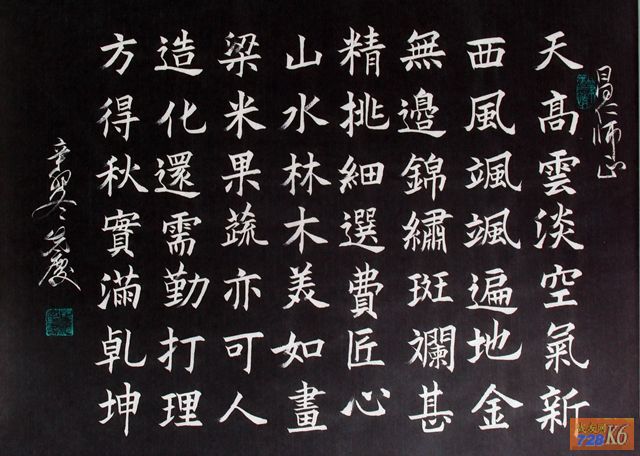 昌仁师正
天髙雲淡空氣新
西風颯颯遍地金
無邊錦繡斑斕甚
精挑細選費匠心
山水林木美如畫
梁米果蔬亦可人
造化還需勤打理
方得秋實滿乾坤
辛卯冬
728K6